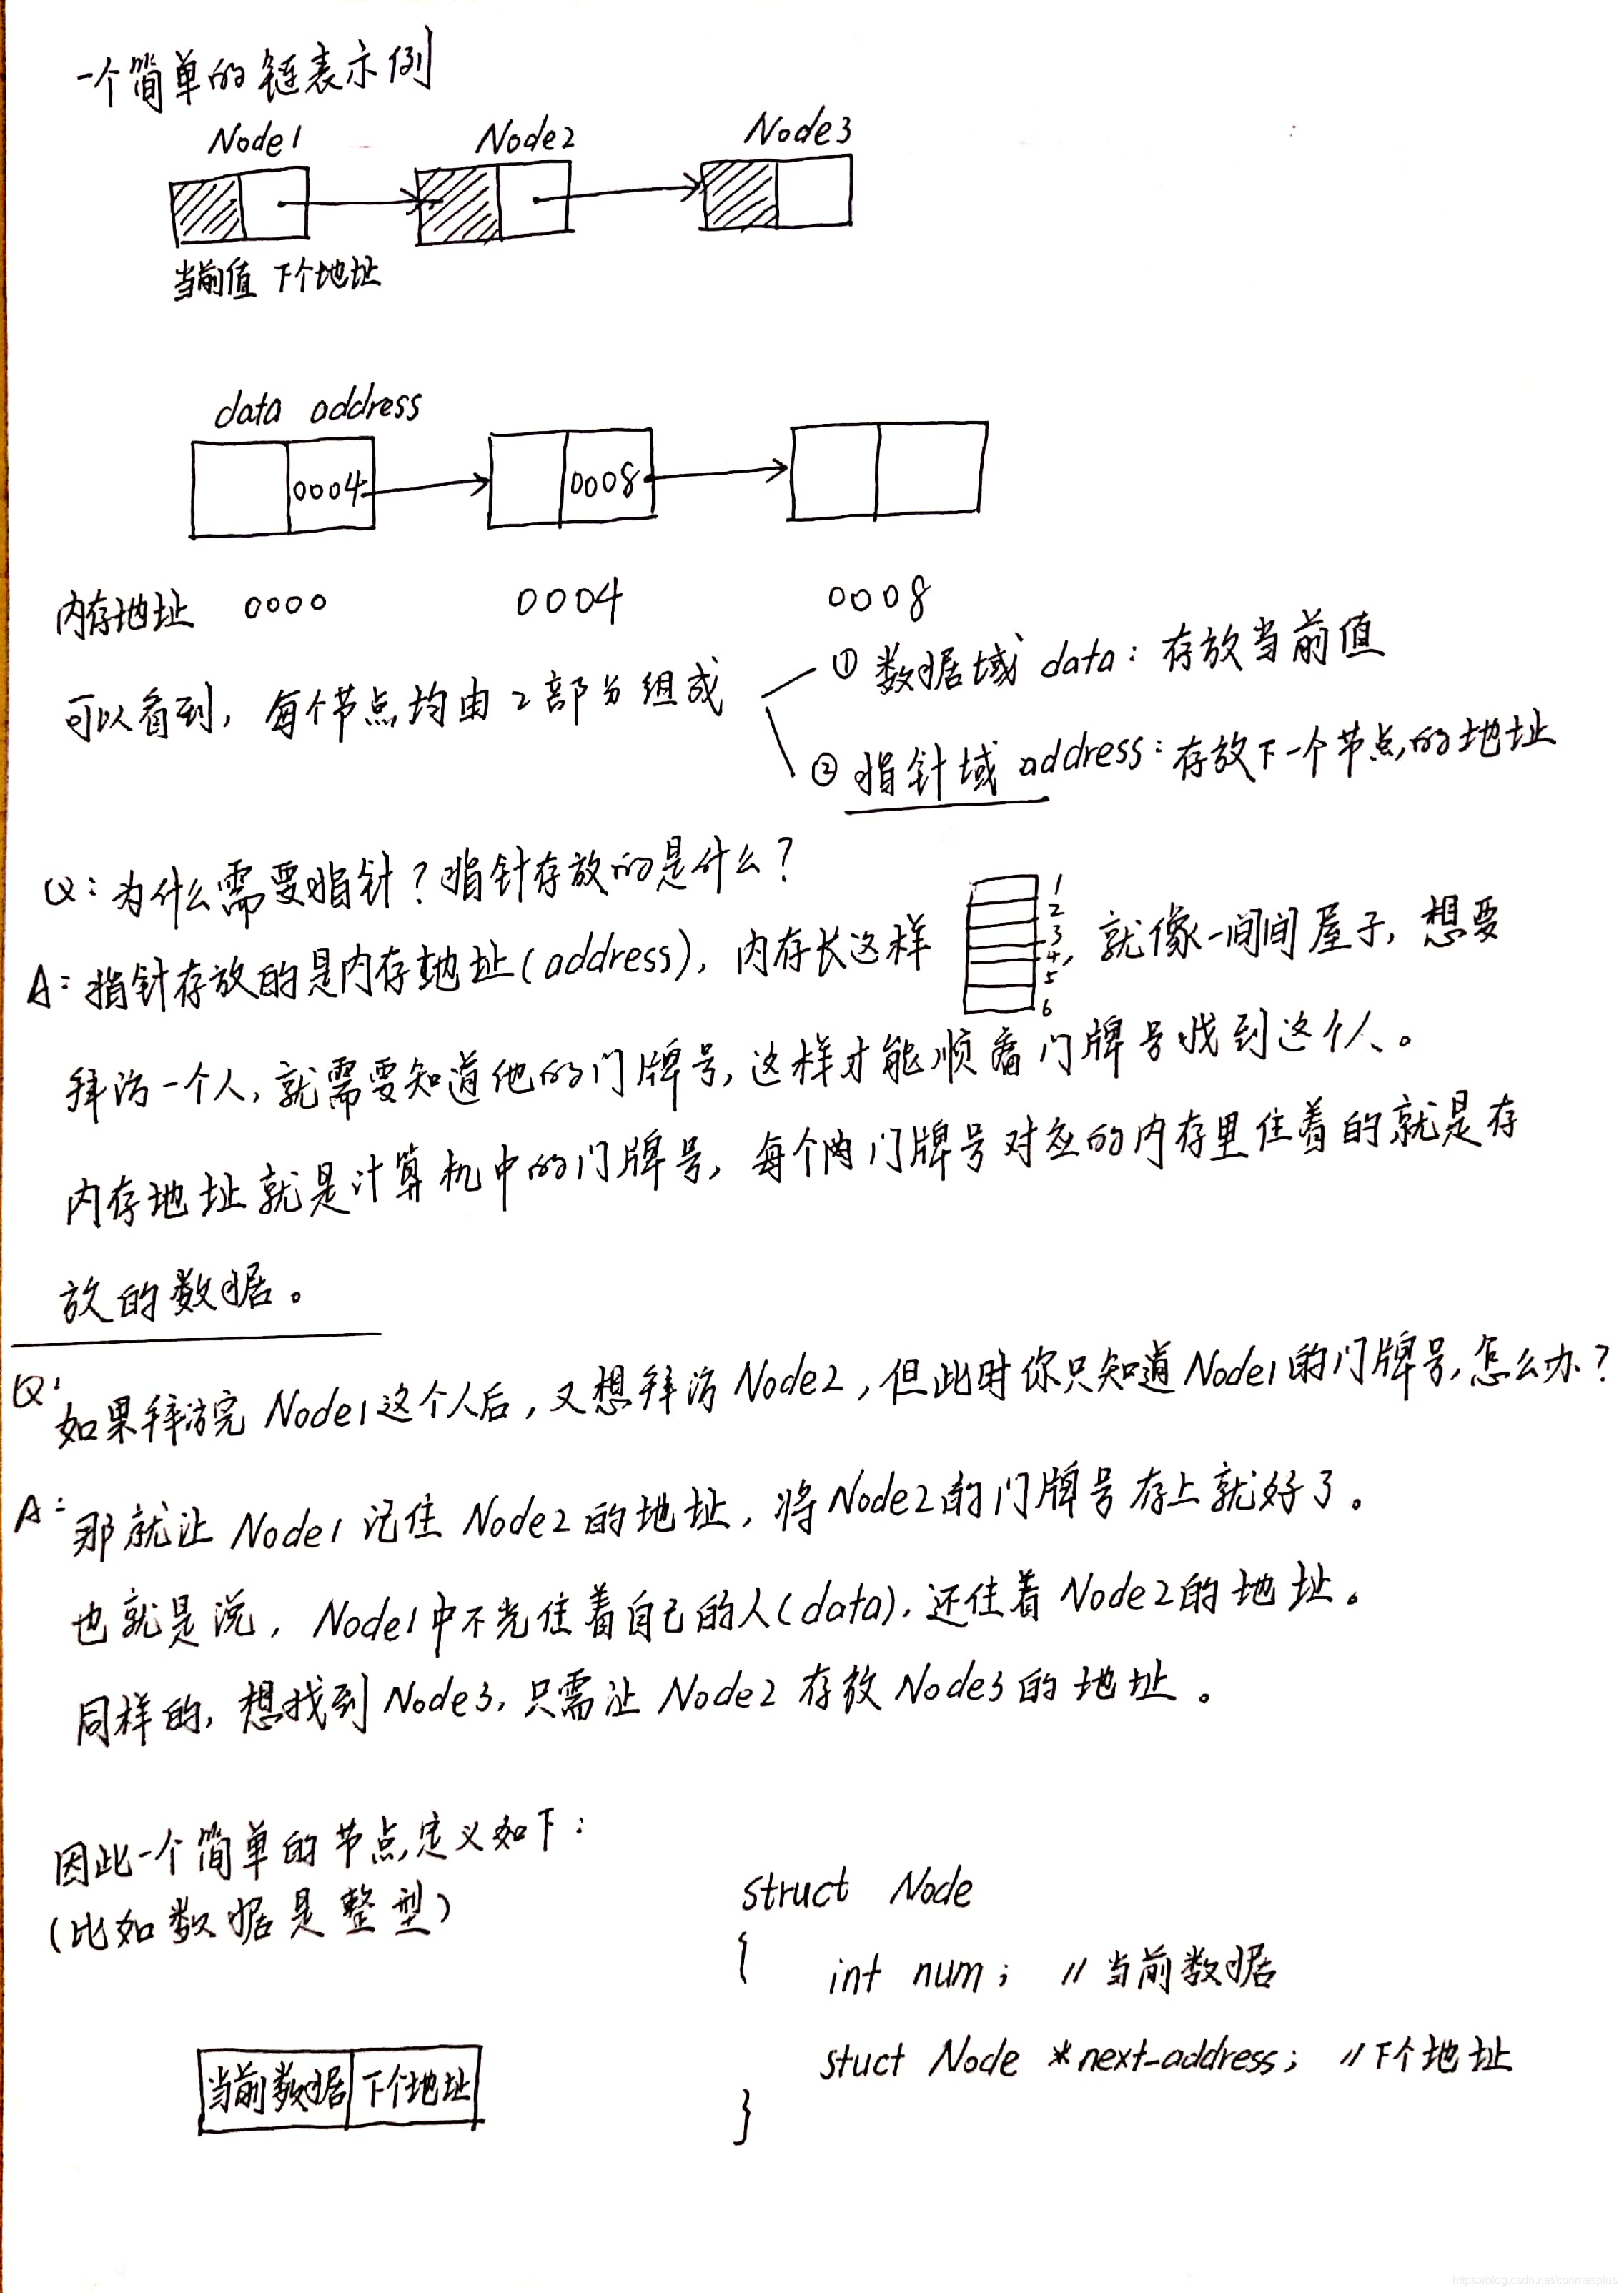 一个简单的链表示例
Node1 Node2 Node3
当前值 下个地址
data address
0004 0008
内存地址 0000 0004 0008
可以看到，每个节点均由2部分组成
① 数据域 data：存放当前值
② 指针域 address：存放下一个节点的地址
Q：为什么需要指针？指针存放的是什么？
1
2
3
4
5
6
A：指针存放的是内存地址(address)，内存长这样，就像一间间屋子，想要
拜访一个人，就需要知道他的门牌号，这样才能顺着门牌号找到这个人。
内存地址就是计算机中的门牌号，每个门牌号对应的内存里住着的就是存
放的数据。
Q：如果拜访完Node1这个人后，又想拜访Node2，但此时你只知道Node1的门牌号，怎么办？
A：那就让Node1记住Node2的地址，将Node2的门牌号存上就好了。
也就是说，Node1中不光住着自己的人(data)，还住着Node2的地址。
同样的，想找到Node3，只需让Node2存放Node3的地址。
因此一个简单的节点定义如下：
(比如数据是整型)
struct Node
{
int num; //当前数据
stuct Node *next-address; //下个地址
}
当前数据 下个地址
https://blog.csdn.net/cprimesplus